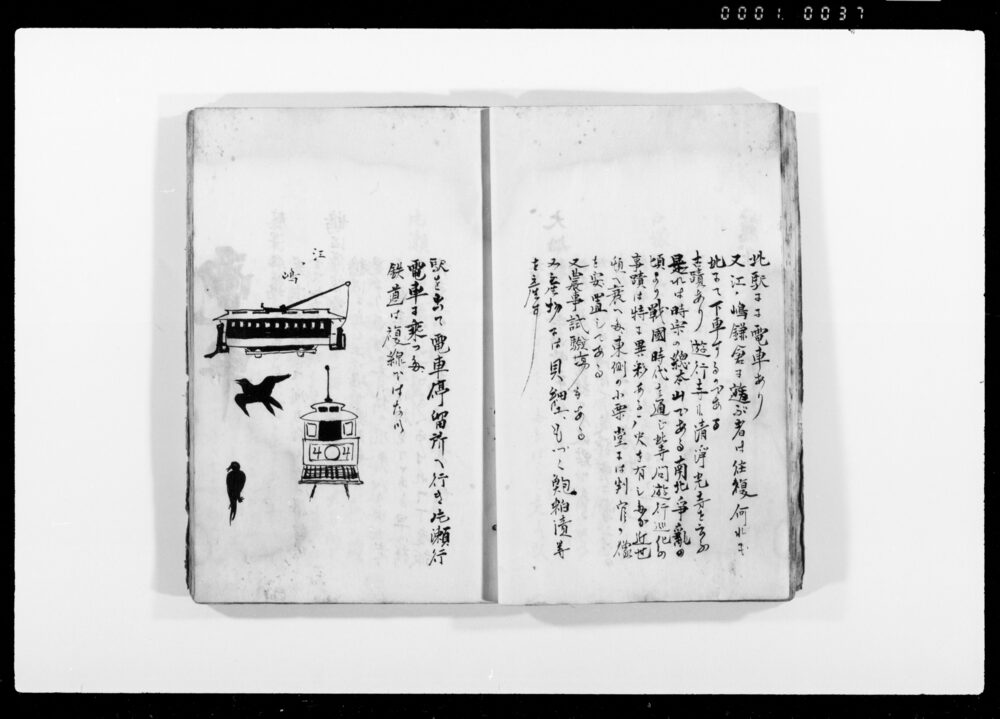 0001. 0037
此駅にて電車あり
又江ノ嶋鎌倉に遊ぶ者は往復何れも
此にて下車するのである
古蹟あり 遊行寺と清浄光寺を云ふ
是れは時宗の総本山である南北争乱の
頃より戦國時代を通じ此寺 遊行巡化の
事蹟は特に異彩ある史を有し 近世
頃へ衰へ 東側の小栗堂には判官の像
を安置してある
又農事試験場もある
又産物には貝細工 もづく 鮑粕漬等
を産す
駅を出て電車停留所へ行き片瀬行
電車に乗つた
鉄道は複線ではない
江
嶋
44